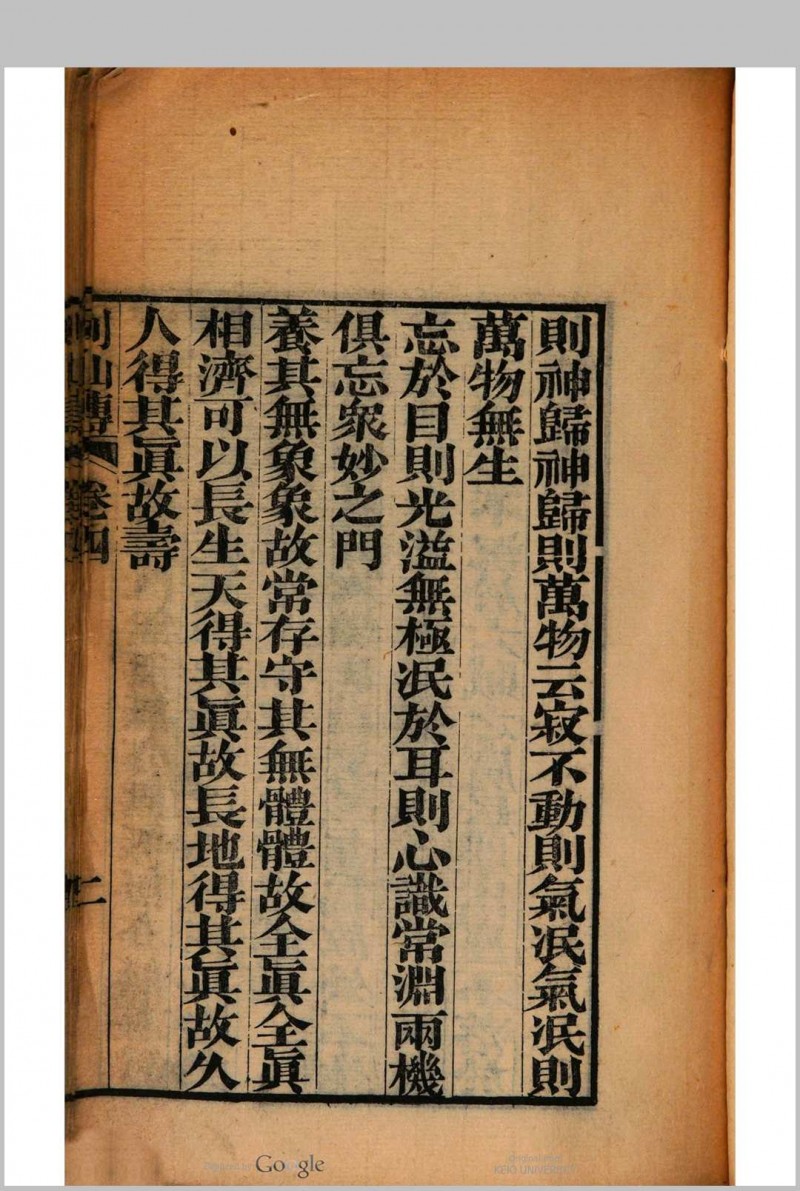 則神歸神歸則萬物云寂不動則氣泯氣泯則
萬物無生
忘於目則光溢無極泯於耳則心識常淵兩機
俱忘衆妙之門
養其無象象故常存守其無體體故全眞全眞
相濟可以長生天得其眞故長地得其眞故久
人得其眞故壽
列仙傳 卷四 二
Google
KEIO UNIVERSITY